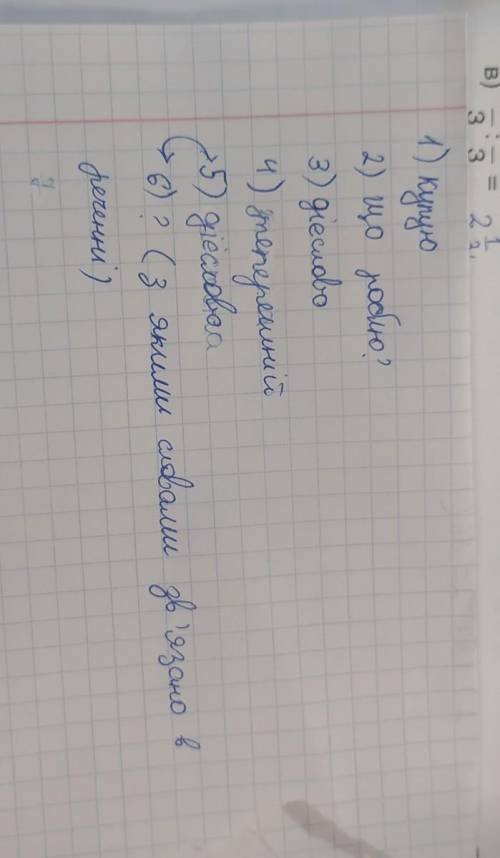 в) 3 : 3 = 2 1/2
1) купую
2) що роблю?
3) дієслово
4) теперішній
5)
6) ? (з якими словами зв'язано в
реченні)